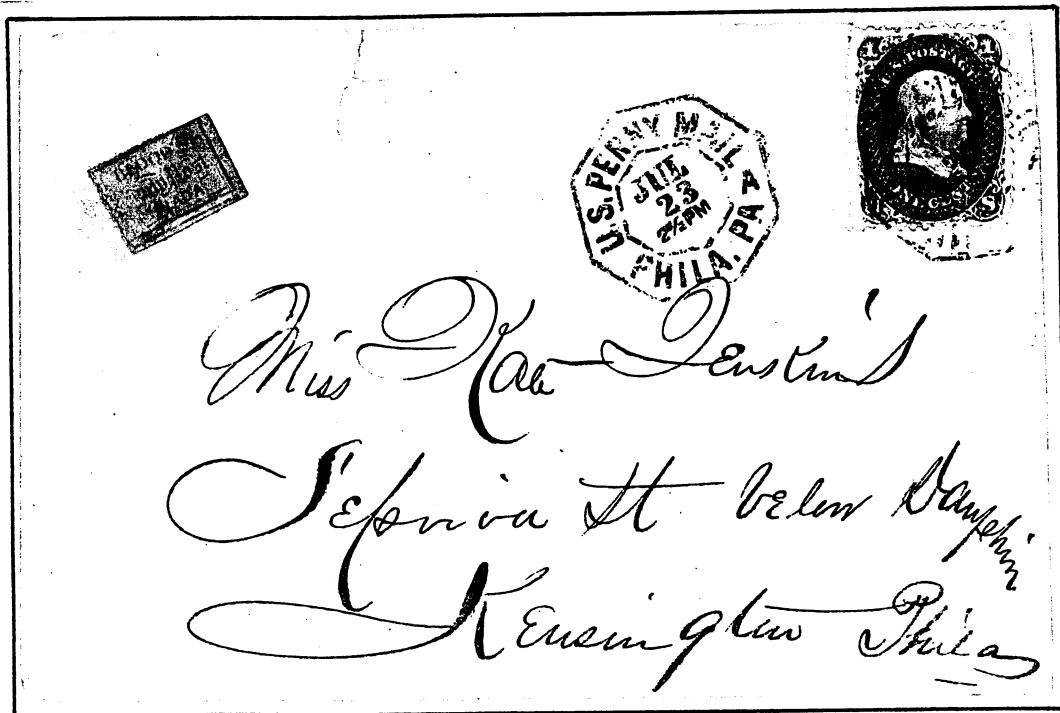 U.S. PENNY MAIL
JUL
23
2½PM
PHILA. PA
1 1
U.S. POSTAGE
ONE CENT
U S
Miss Kate Jenkins
Sepviva St below Dauphin
Kensington Phila